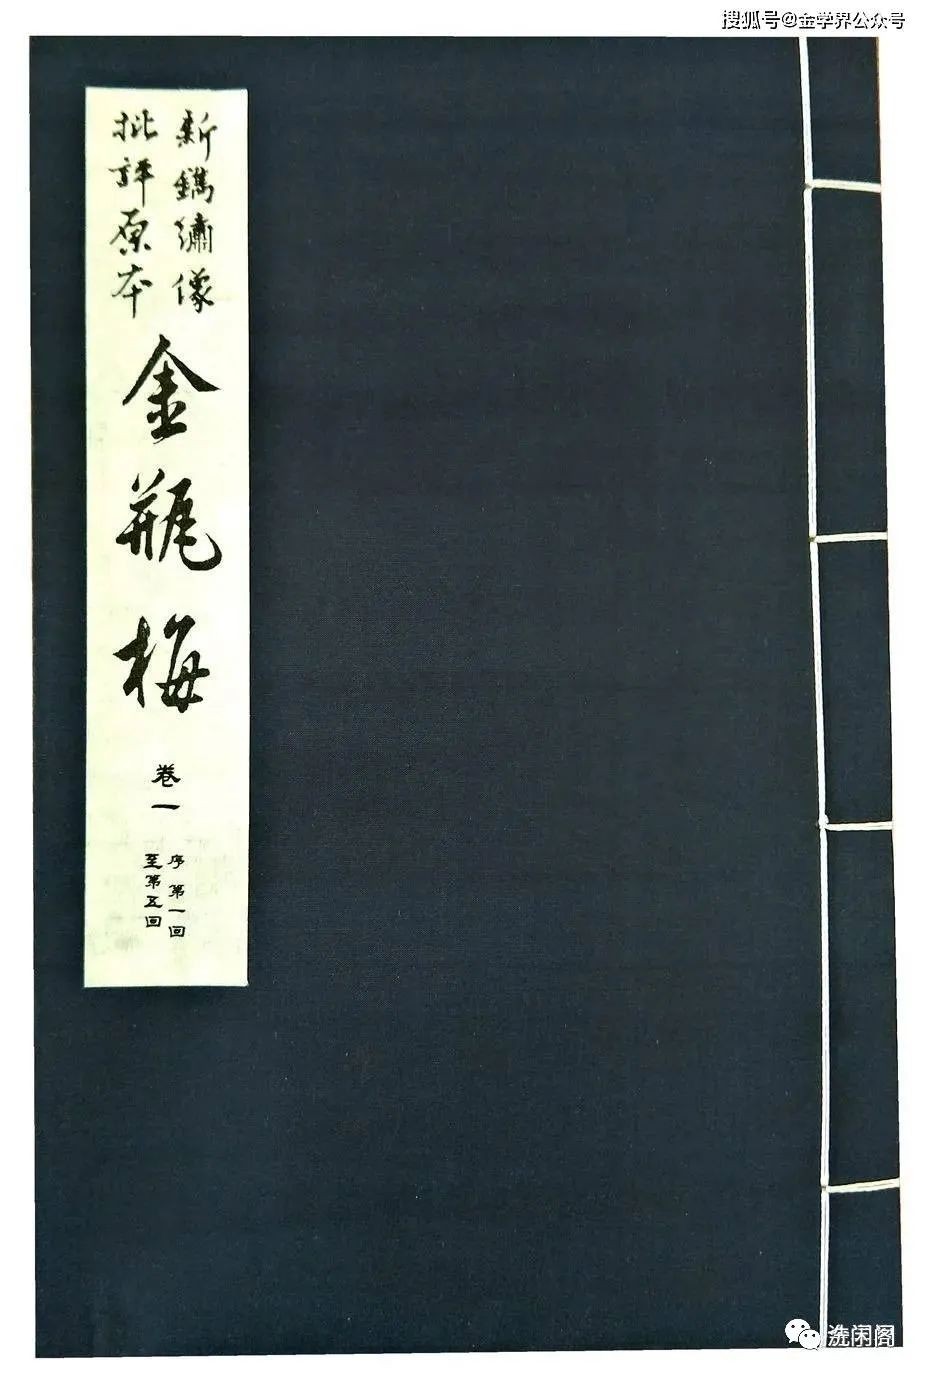 搜狐号@金学界公众号
新鐫繡像
批評原本
金瓶梅
卷一
序 第一回
至第五回
洗闲阁